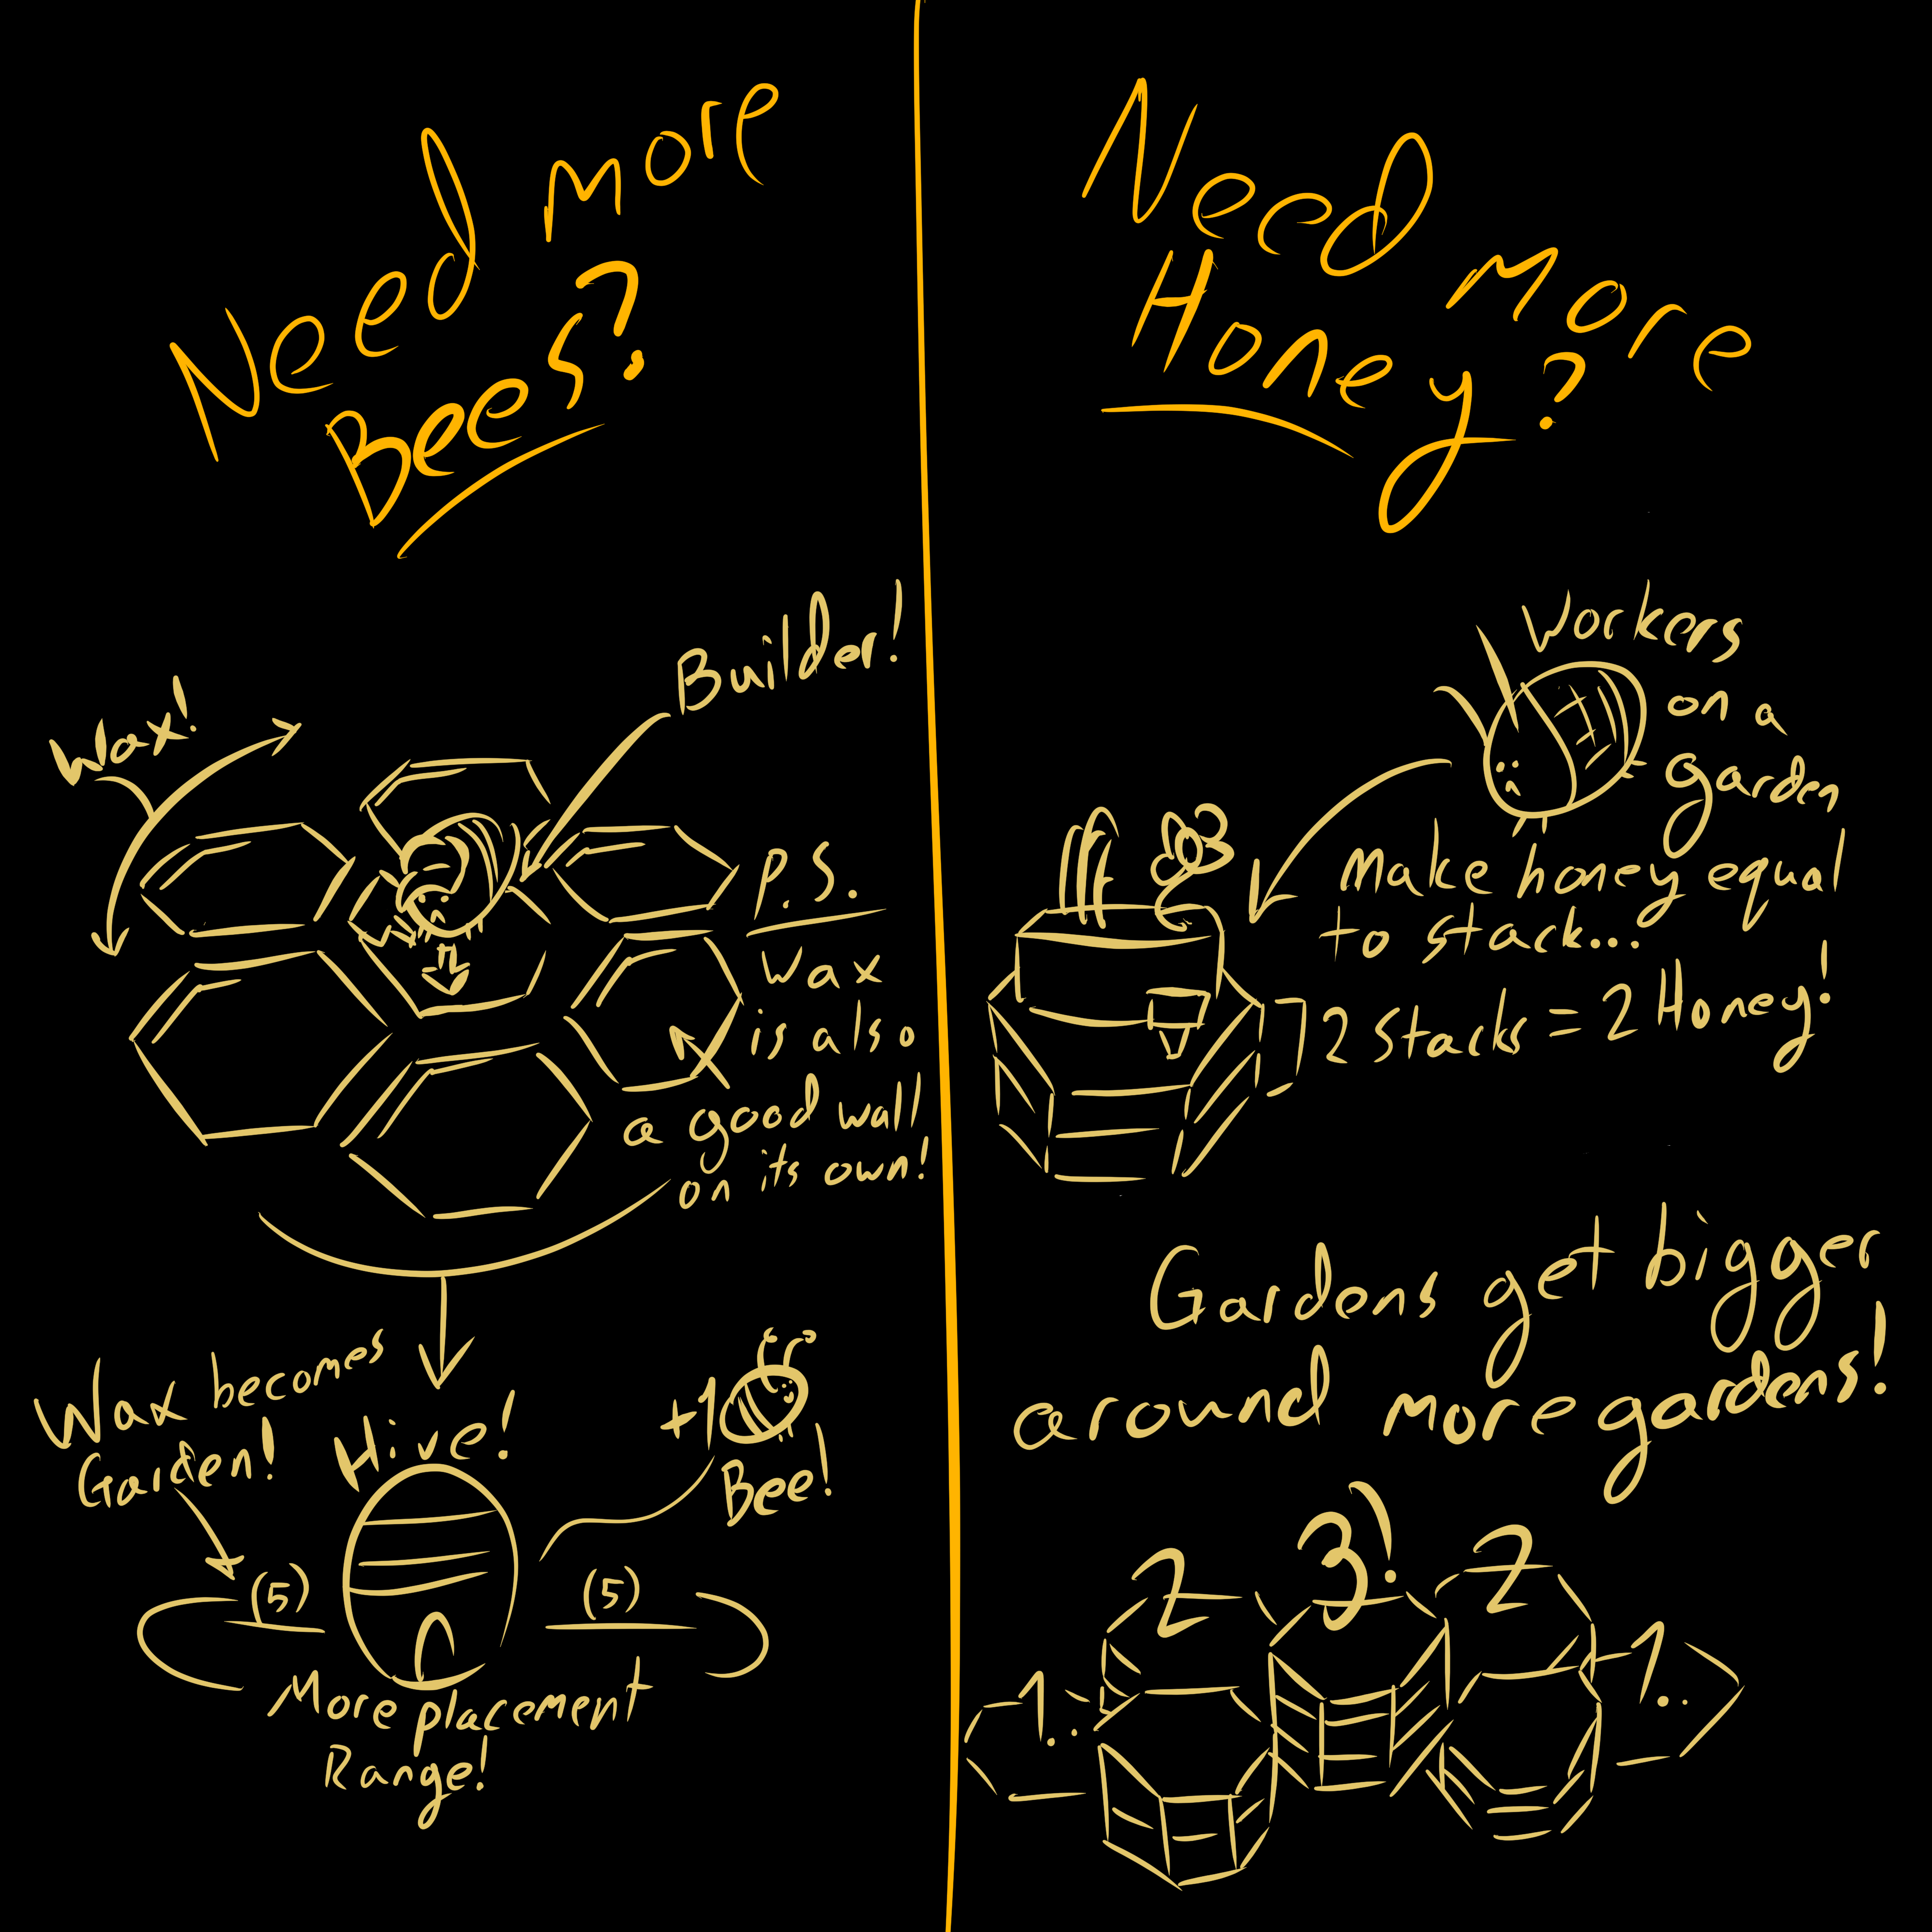 Need more
Bees?
Builder!
Wax!
P.S.
Wax
is also
a good wall
on its own!
Wax becomes
Garden!
Hive!
+1
Bee!
(5)
(5)
More placement
Range!
Need more
Honey?
Workers
on a
Garden
Make honey equal
to stack...
2 stacks = 2 Honey!
Gardens get bigger
around more gardens!
2
3!
2
1..
1..